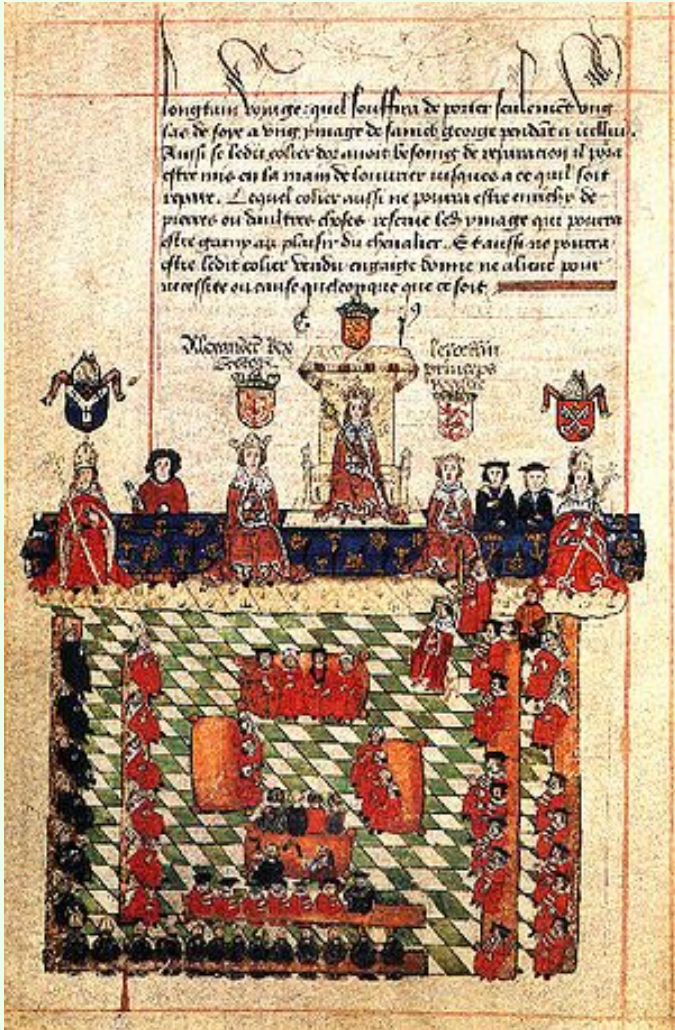 longtain voyage: quel souffira de porter seulemēt ung
las de soye a ung ymage de sainch george pendāt a icellui.
Aussi se ledit colier dor avoit besoing de reparacion il pora
estre mis en la main de louvrier jusques a ce quil soit
repare. Lequel colier aussi ne pourra estre enrichy de
pierres ou daultres choses reserve les ymage que pourra
estre garny au plaisir du chevalier. Et aussi ne pourra
estre ledit colier vendu engaige donne ne aliene pour
necessite ou cause quelconque que ce soit
Alexander Rex
princeps